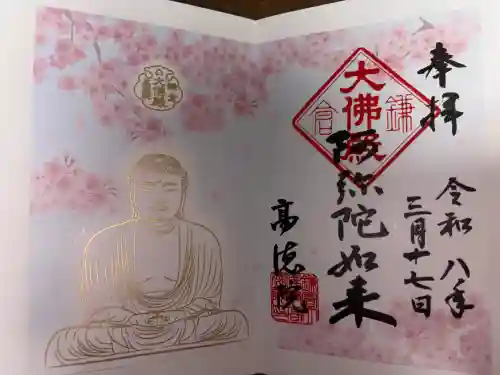 奉拝
令和八年
三月十七日
大佛殿
鎌
倉
阿弥陀如来
高徳院